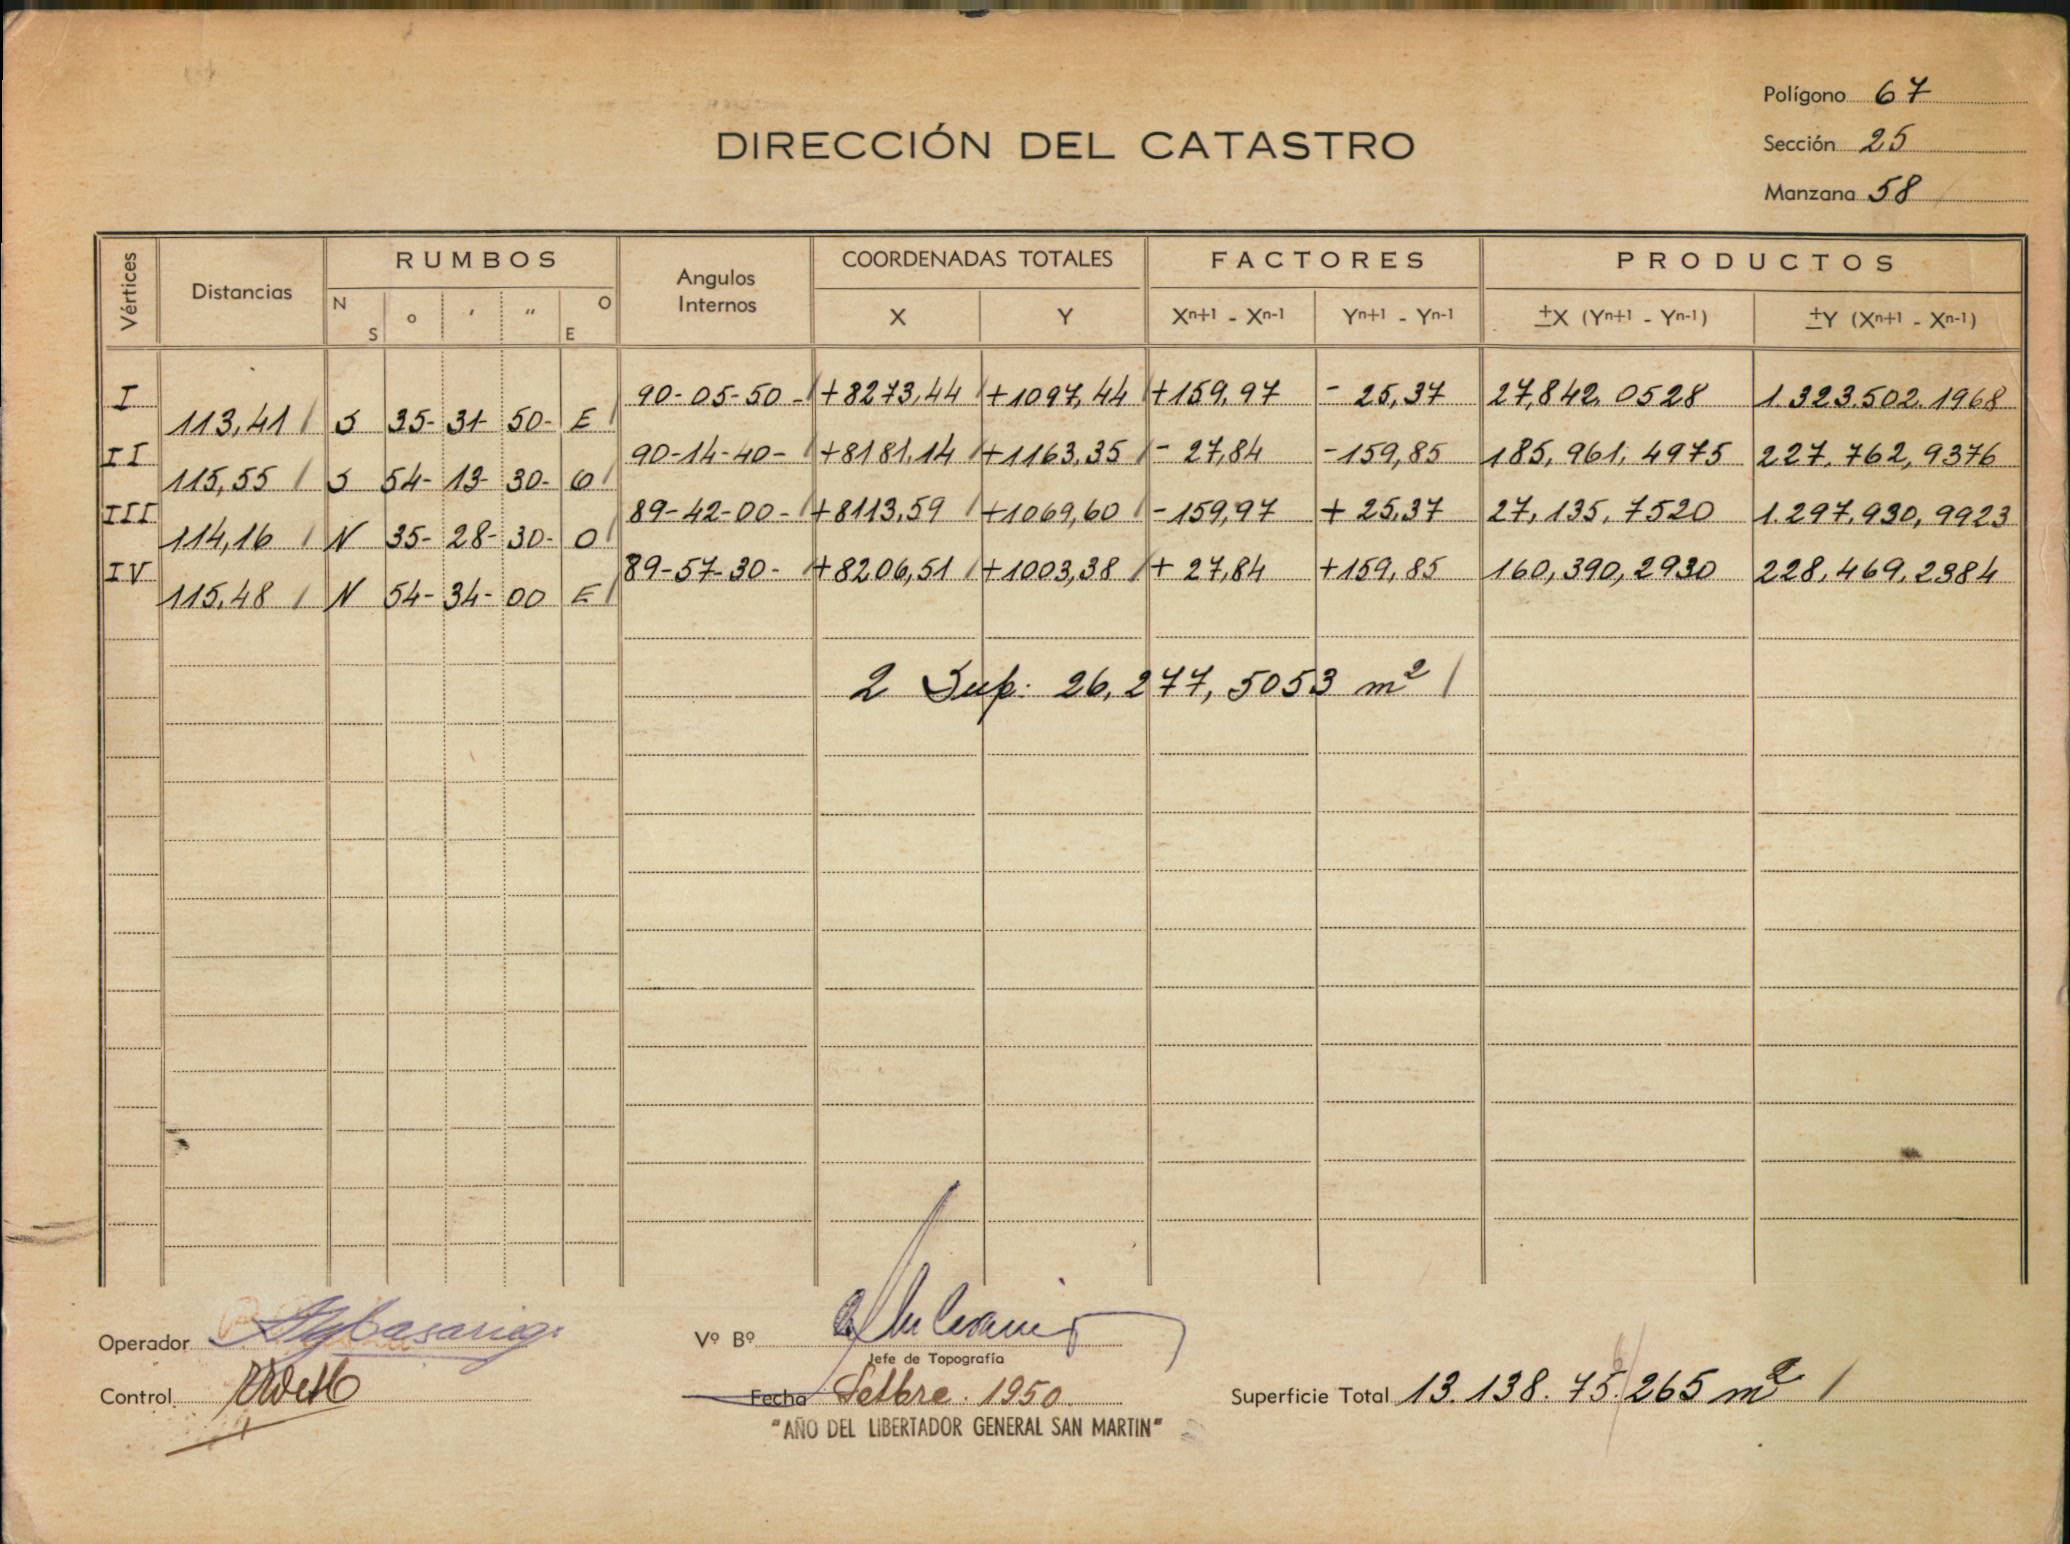 Polígono 67
DIRECCIÓN DEL CATASTRO
Sección 25
Manzana 58
Vértices Distancias RUMBOS Angulos Internos COORDENADAS TOTALES FACTORES PRODUCTOS
N S o ′ ″ O E X Y Xn+1 - Xn-1 Yn+1 - Yn-1 ±X (Yn+1 - Yn-1) ±Y (Xn+1 - Xn-1)
I 90-05-50- +8273,44 +1097,44 +159,97 - 25,37 27,842,0528 1.323.502.1968
113,41 S 35- 31- 50- E
II 90-14-40- +8181,14 +1163,35 - 27,84 -159,85 185,961,4975 227,762,9376
115,55 S 54- 13- 30- O
III 89-42-00- +8113,59 +1069,60 -159,97 + 25,37 27,135,7520 1.297.930,9923
114,16 N 35- 28- 30- O
IV 89-57-30- +8206,51 +1003,38 + 27,84 +159,85 160,390,2930 228,469,2384
115,48 N 54- 34- 00 E
2 Sup: 26,277,5053 m²
Operador
Vº Bº
Jefe de Topografía
Control
Fecha Setbre. 1950
Superficie Total 13.138.75.265 m²
"AÑO DEL LIBERTADOR GENERAL SAN MARTIN"